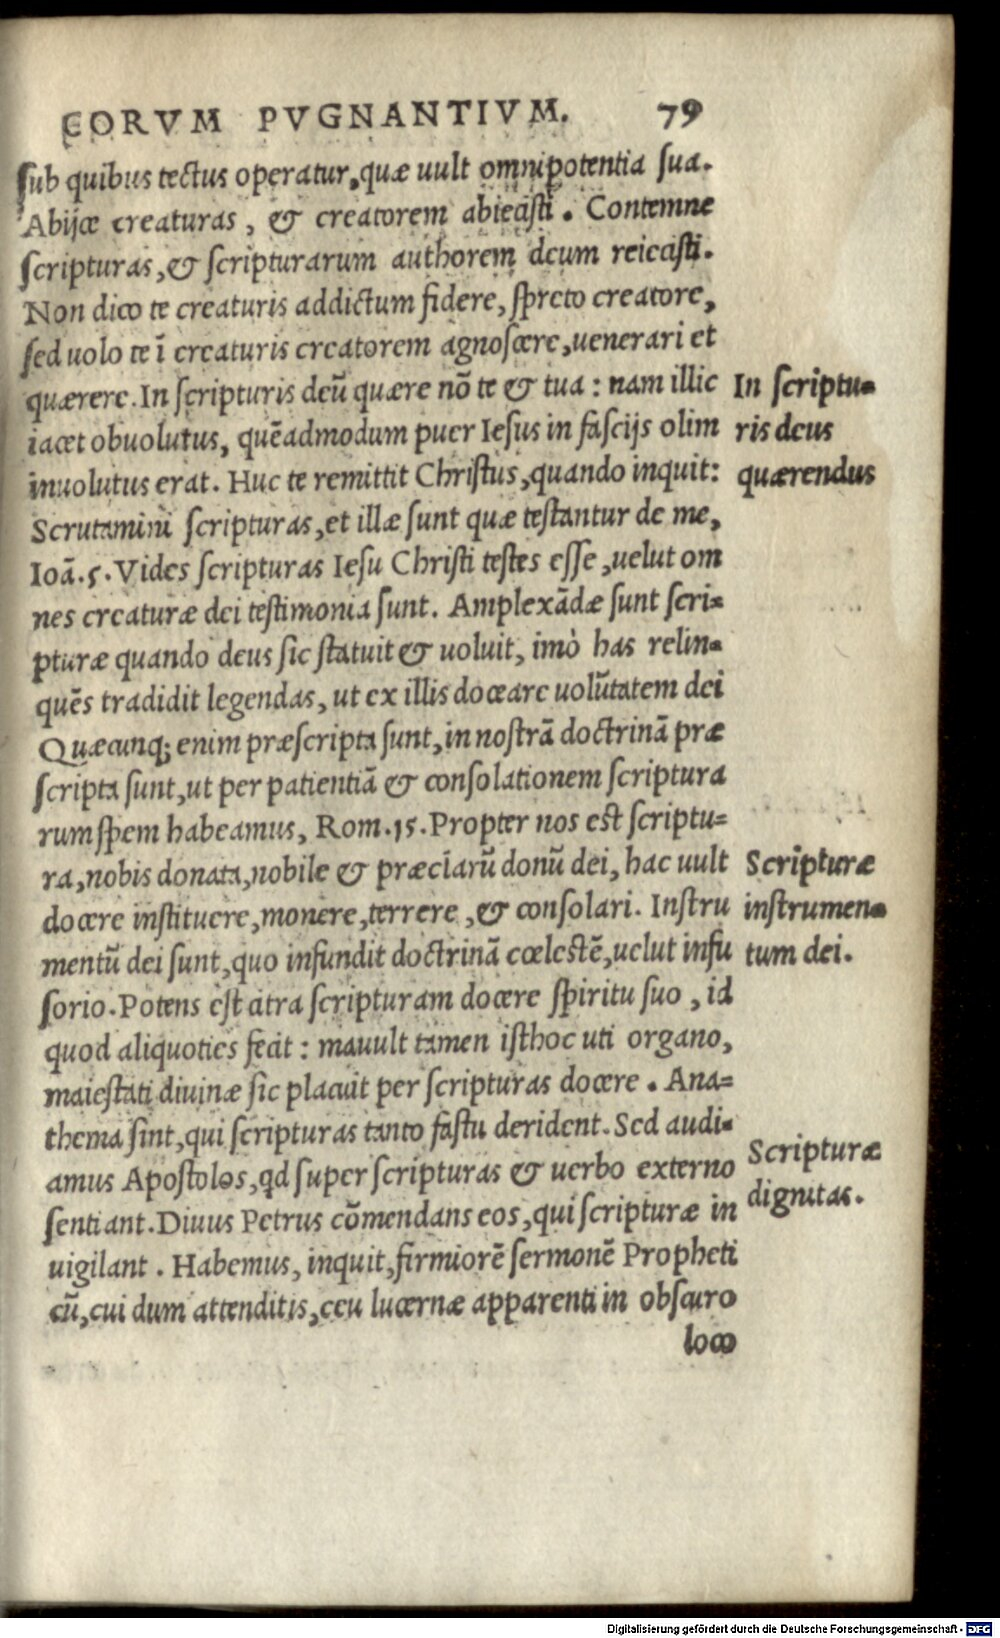 EORVM PVGNANTIVM. 79
sub quibus tectus operatur, quæ uult omnipotentia sua.
Abijce creaturas, & creatorem abiecisti. Contemne
scripturas, & scripturarum authorem deum reiecisti.
Non dico te creaturis addictum fidere, spreto creatore,
sed uolo te ī creaturis creatorem agnoscere, uenerari et
quærere. In scripturis deū quære nō te & tua: nam illic
iacet obuolutus, quēadmodum puer Iesus in fascijs olim
inuolutus erat. Huc te remittit Christus, quando inquit:
Scrutamini scripturas, et illæ sunt quæ testantur de me,
Ioā.5. Vides scripturas Iesu Christi testes esse, uelut om
nes creaturæ dei testimonia sunt. Amplexādæ sunt scri=
pturæ quando deus sic statuit & uoluit, imò has relin=
quēs tradidit legendas, ut ex illis doceare uolūtatem dei
Quæcunq; enim præscripta sunt, in nostrā doctrinā præ
scripta sunt, ut per patientiā & consolationem scriptura
rum spem habeamus, Rom.15. Propter nos est scriptu=
ra, nobis donata, nobile & præclarū donū dei, hac uult
docere instituere, monere, terrere, & consolari. Instru
mentū dei sunt, quo infundit doctrinā cœlestē, uelut infu
sorio. Potens est citra scripturam docere spiritu suo, id
quod aliquoties fecit: mauult tamen isthoc uti organo,
maiestati diuinæ sic placuit per scripturas docere. Ana=
thema sint, qui scripturas tanto fastu derident. Sed audi=
amus Apostolos, qd super scripturas & uerbo externo
sentiant. Diuus Petrus cōmendans eos, qui scripturæ in
uigilant. Habemus, inquit, firmiorē sermonē Propheti
cū, cui dum attenditis, ceu lucernæ apparenti in obscuro
loco
In scriptu=
ris deus
quærendus
Scripturæ
instrumen=
tum dei.
Scripturæ
dignitas.
Digitalisierung gefördert durch die Deutsche Forschungsgemeinschaft - DFG